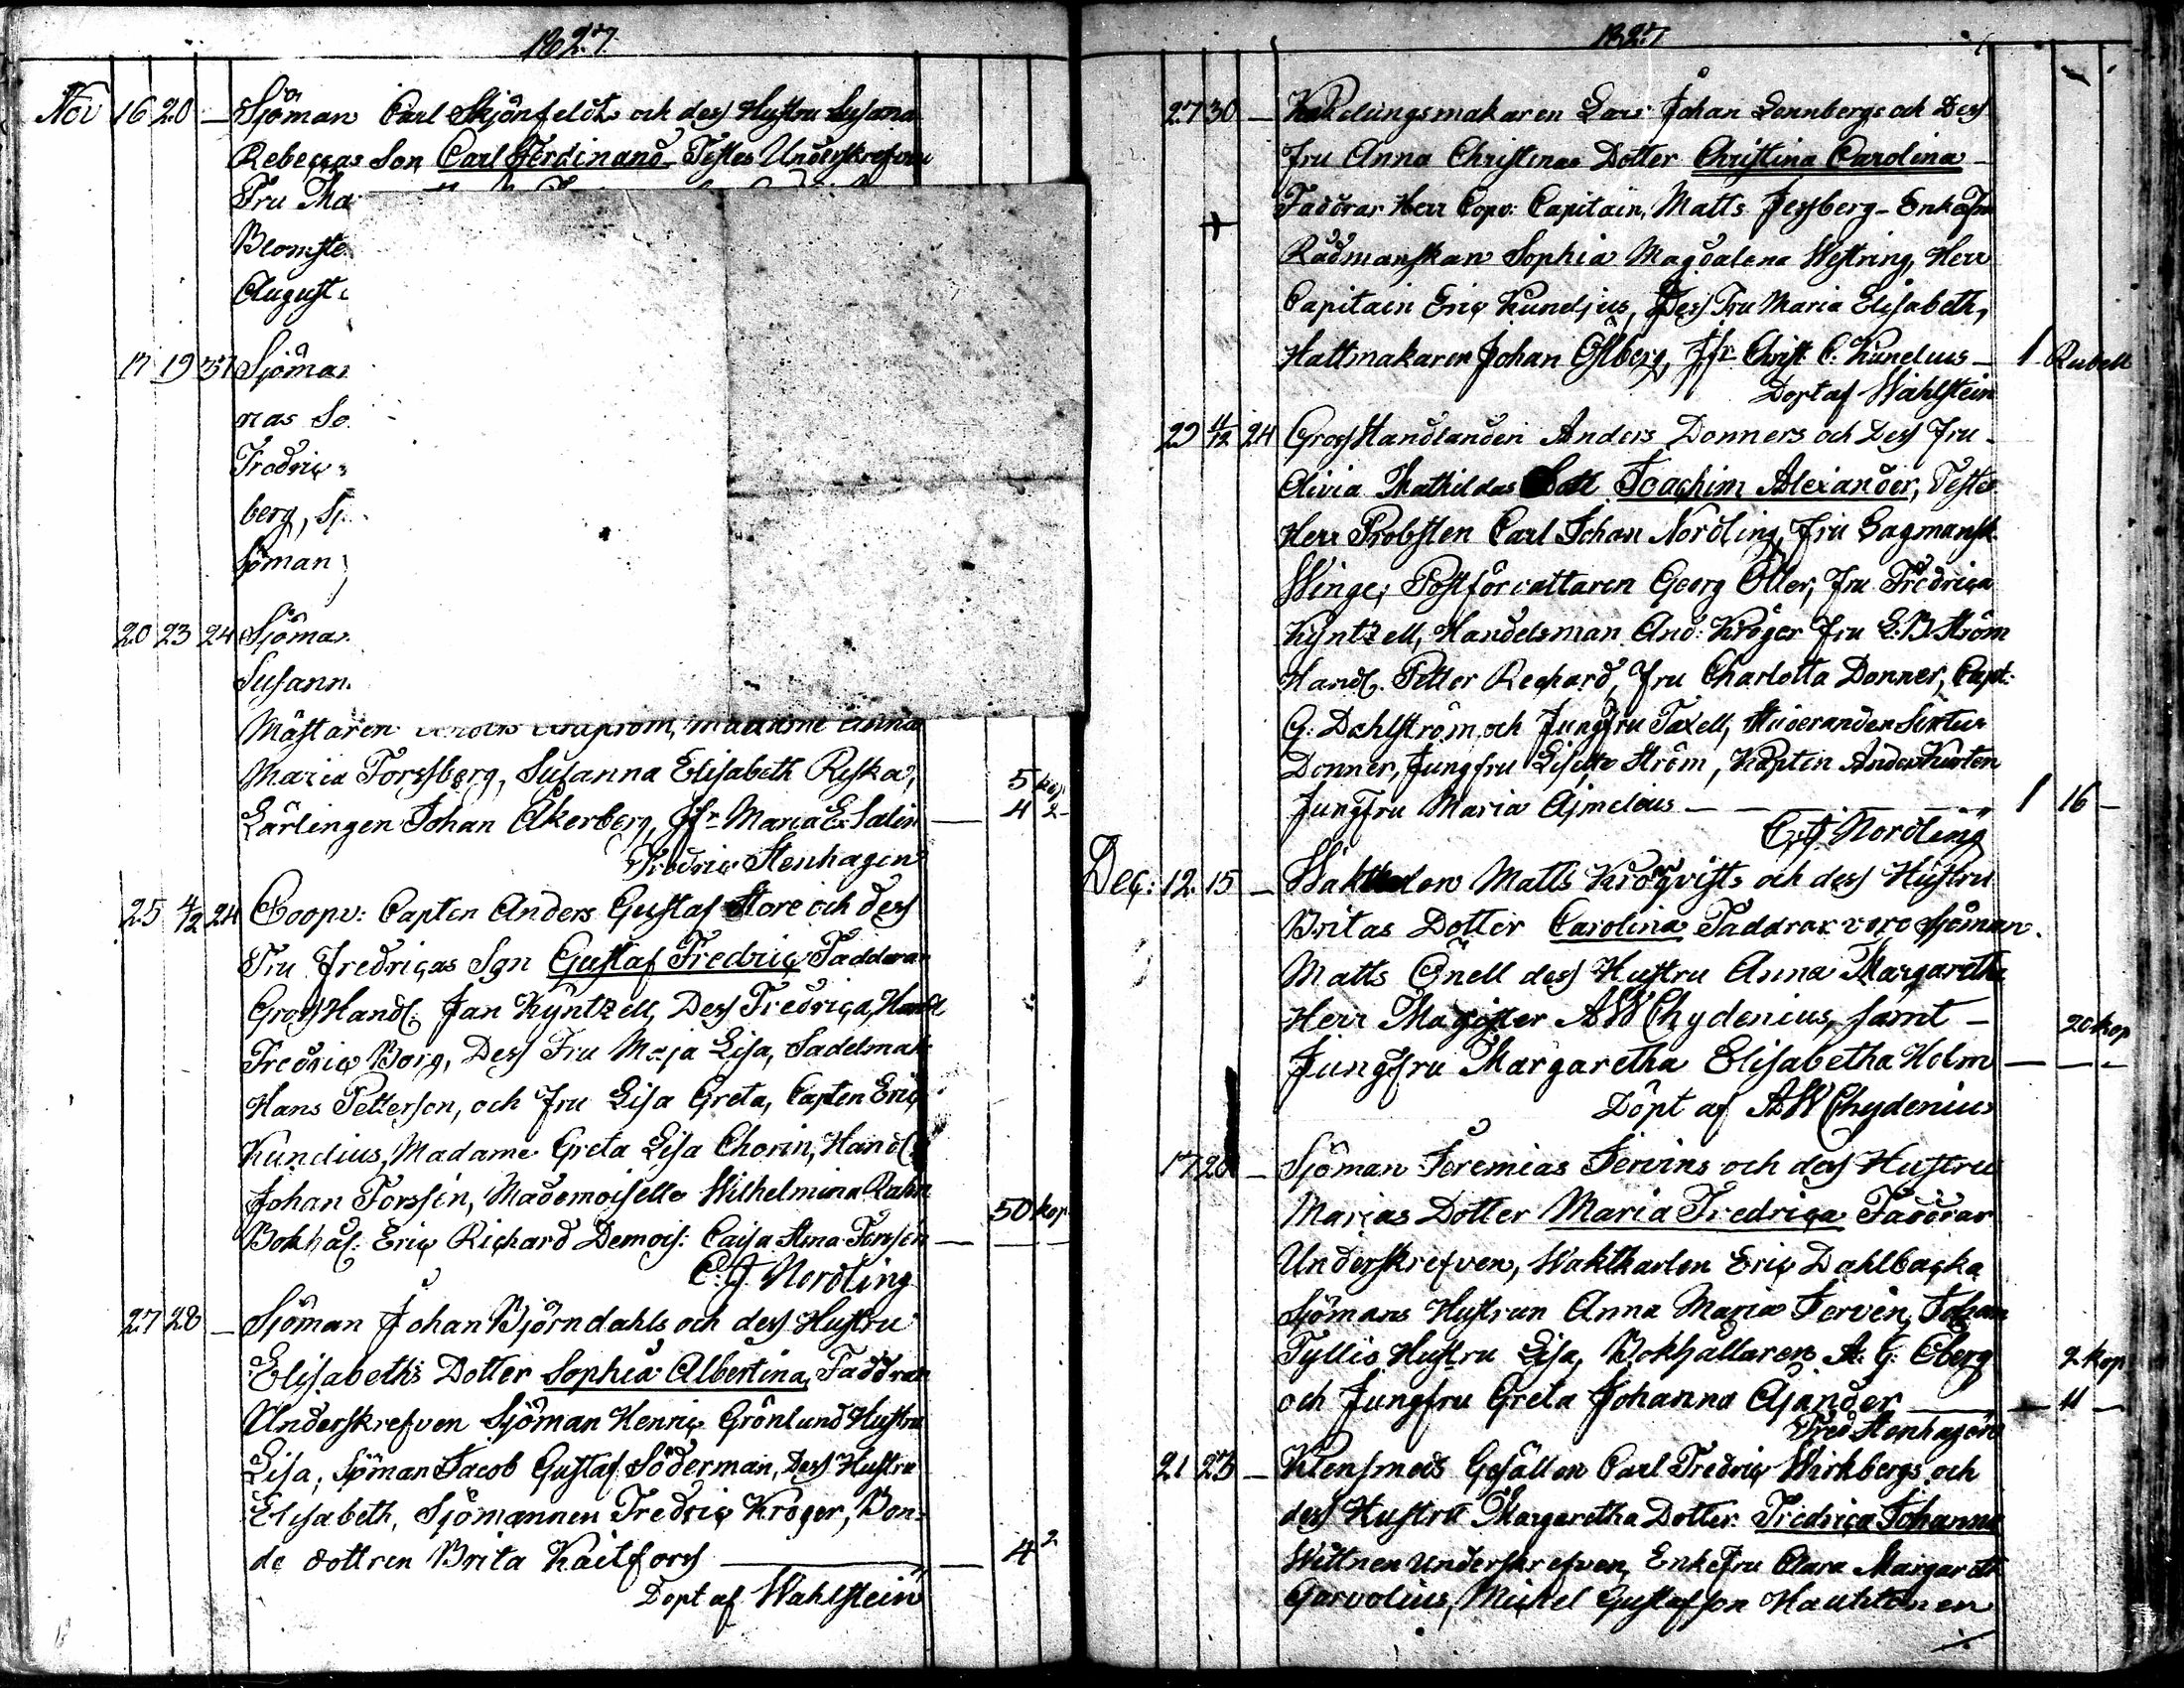 1827.
Nov 16 20 — Sjöman Carl Skjönfeldts och dess Hustru Susana
Rebeccas Son Carl Ferdinand Testes Underskrefven
Fru Ma
Blomste
August
17 19 37 Sjöman
nas So
Fredric
berg, Sj
Sjöman
20 23 24 Sjöman
Susann
Mästaren Madame Anna
Maria Forssberg, Susanna Elisabeth Riska, 5 kop
Lärlingen Johan Åkerberg, Jfr Maria E. Salin — 4 2 -
Fredric Stenhagen
25 4/12 24 Coopv: Capten Anders Gustaf Store och dess
Fru Fredricas Son Gustaf Fredric Faddrar
GrossHandl: Jan Kyntzell, Dess Fredrica, Handl
Fredric Borg, Dess Fru Maja Lisa, Sadelmak
Hans Petterson, och Fru Lisa Greta, Capten Eric
Kunelius, Madame Greta Lisa Chorin, Handl:
Johan Forssén, Mademoiselle Wilhelmina Rahm 50 kop
Bokhål: Eric Richard Demois: Caisa Forssén —
C. J. Nordling
27 28 — Sjöman Johan Björndahls och dess Hustru
Elisabeths Dotter Sophia Albertina, Faddrar
Underskrefven Sjöman Henric Grönlund Hustru
Lisa, Sjöman Jacob Gustaf Söderman, Dess Hustru
Elisabeth, Sjömannen Fredric Kröger, Bon-
de dottren Brita Kaitfors — 4 2
Döpt af Wahlstein
1827
27 30 — Kakelungsmakaren Lars Johan Lennbergs och Dess
Fru Anna Christinas Dotter Christina Carolina
Faddrar Herr Copv: Capitain, Matts Jessberg - EnkeFru
Rådmanskan Sophia Magdalena Westring, Herr
Capitain Eric Kunelius, Dess Fru Maria Elisabeth,
Hattmakaren Johan Östberg, Jfr Christ. C. Kunelius — 1 Rubell
Döpt af Wahlstein
29 11/12 24 GrossHandlanden Anders Donners och Dess Fru
Olivia Mathildas Joachim Alexander, Testes
Herr Probsten Carl Johan Nordling, Fru Lagmansk.
Winge, Postförvaltaren Georg Öller, Fru Fredrica
Kyntzell, Handelsman And: Kröger Fru E. B. Ström
Handl. Petter Rechard, Fru Charlotta Donner, Capt:
G. Dahlström och Jungfru Taxell, Studeranden Sixtus
Donner, Jungfru Lisette Ström, Kapten Anders Kurten
Jungfru Maria Ajmelæus — 1 16 —
C. J. Nordling
Dec: 12. 15 — Waktkarlen Matts Kronqvists och dess Hustru
Britas Dotter Carolina Faddrar voro Sjöman
Matts Önell dess Hustru Anna Margaretha
Herr Magister AW Chydenius, samt — 20 kop
Jungfru Margaretha Elisabetha Holm —
Döpt af AW Chydenius
17 20 — Sjöman Jeremias Jervins och dess Hustru
Marias Dotter Maria Fredrica Faddrar
Underskrefven, Waktkarlen Eric Dahlbacka
Sjömans Hustrun Anna Maria Jervin, Johan
Tyllis Hustru Lisa, Bokhållaren A. G. Öberg 2 kop
och Jungfru Greta Johanna Ajander — 11 —
Fred Stenhagen
21 23 — Klensmeds Gesällen Carl Fredric Wirkbergs och
dess Hustru Margaretha Dotter Fredrica Johanna
Wittnen Underskrefven, EnkeFru Clara Margareth
Garvolius, Mickel Gustafson Hauhtonen